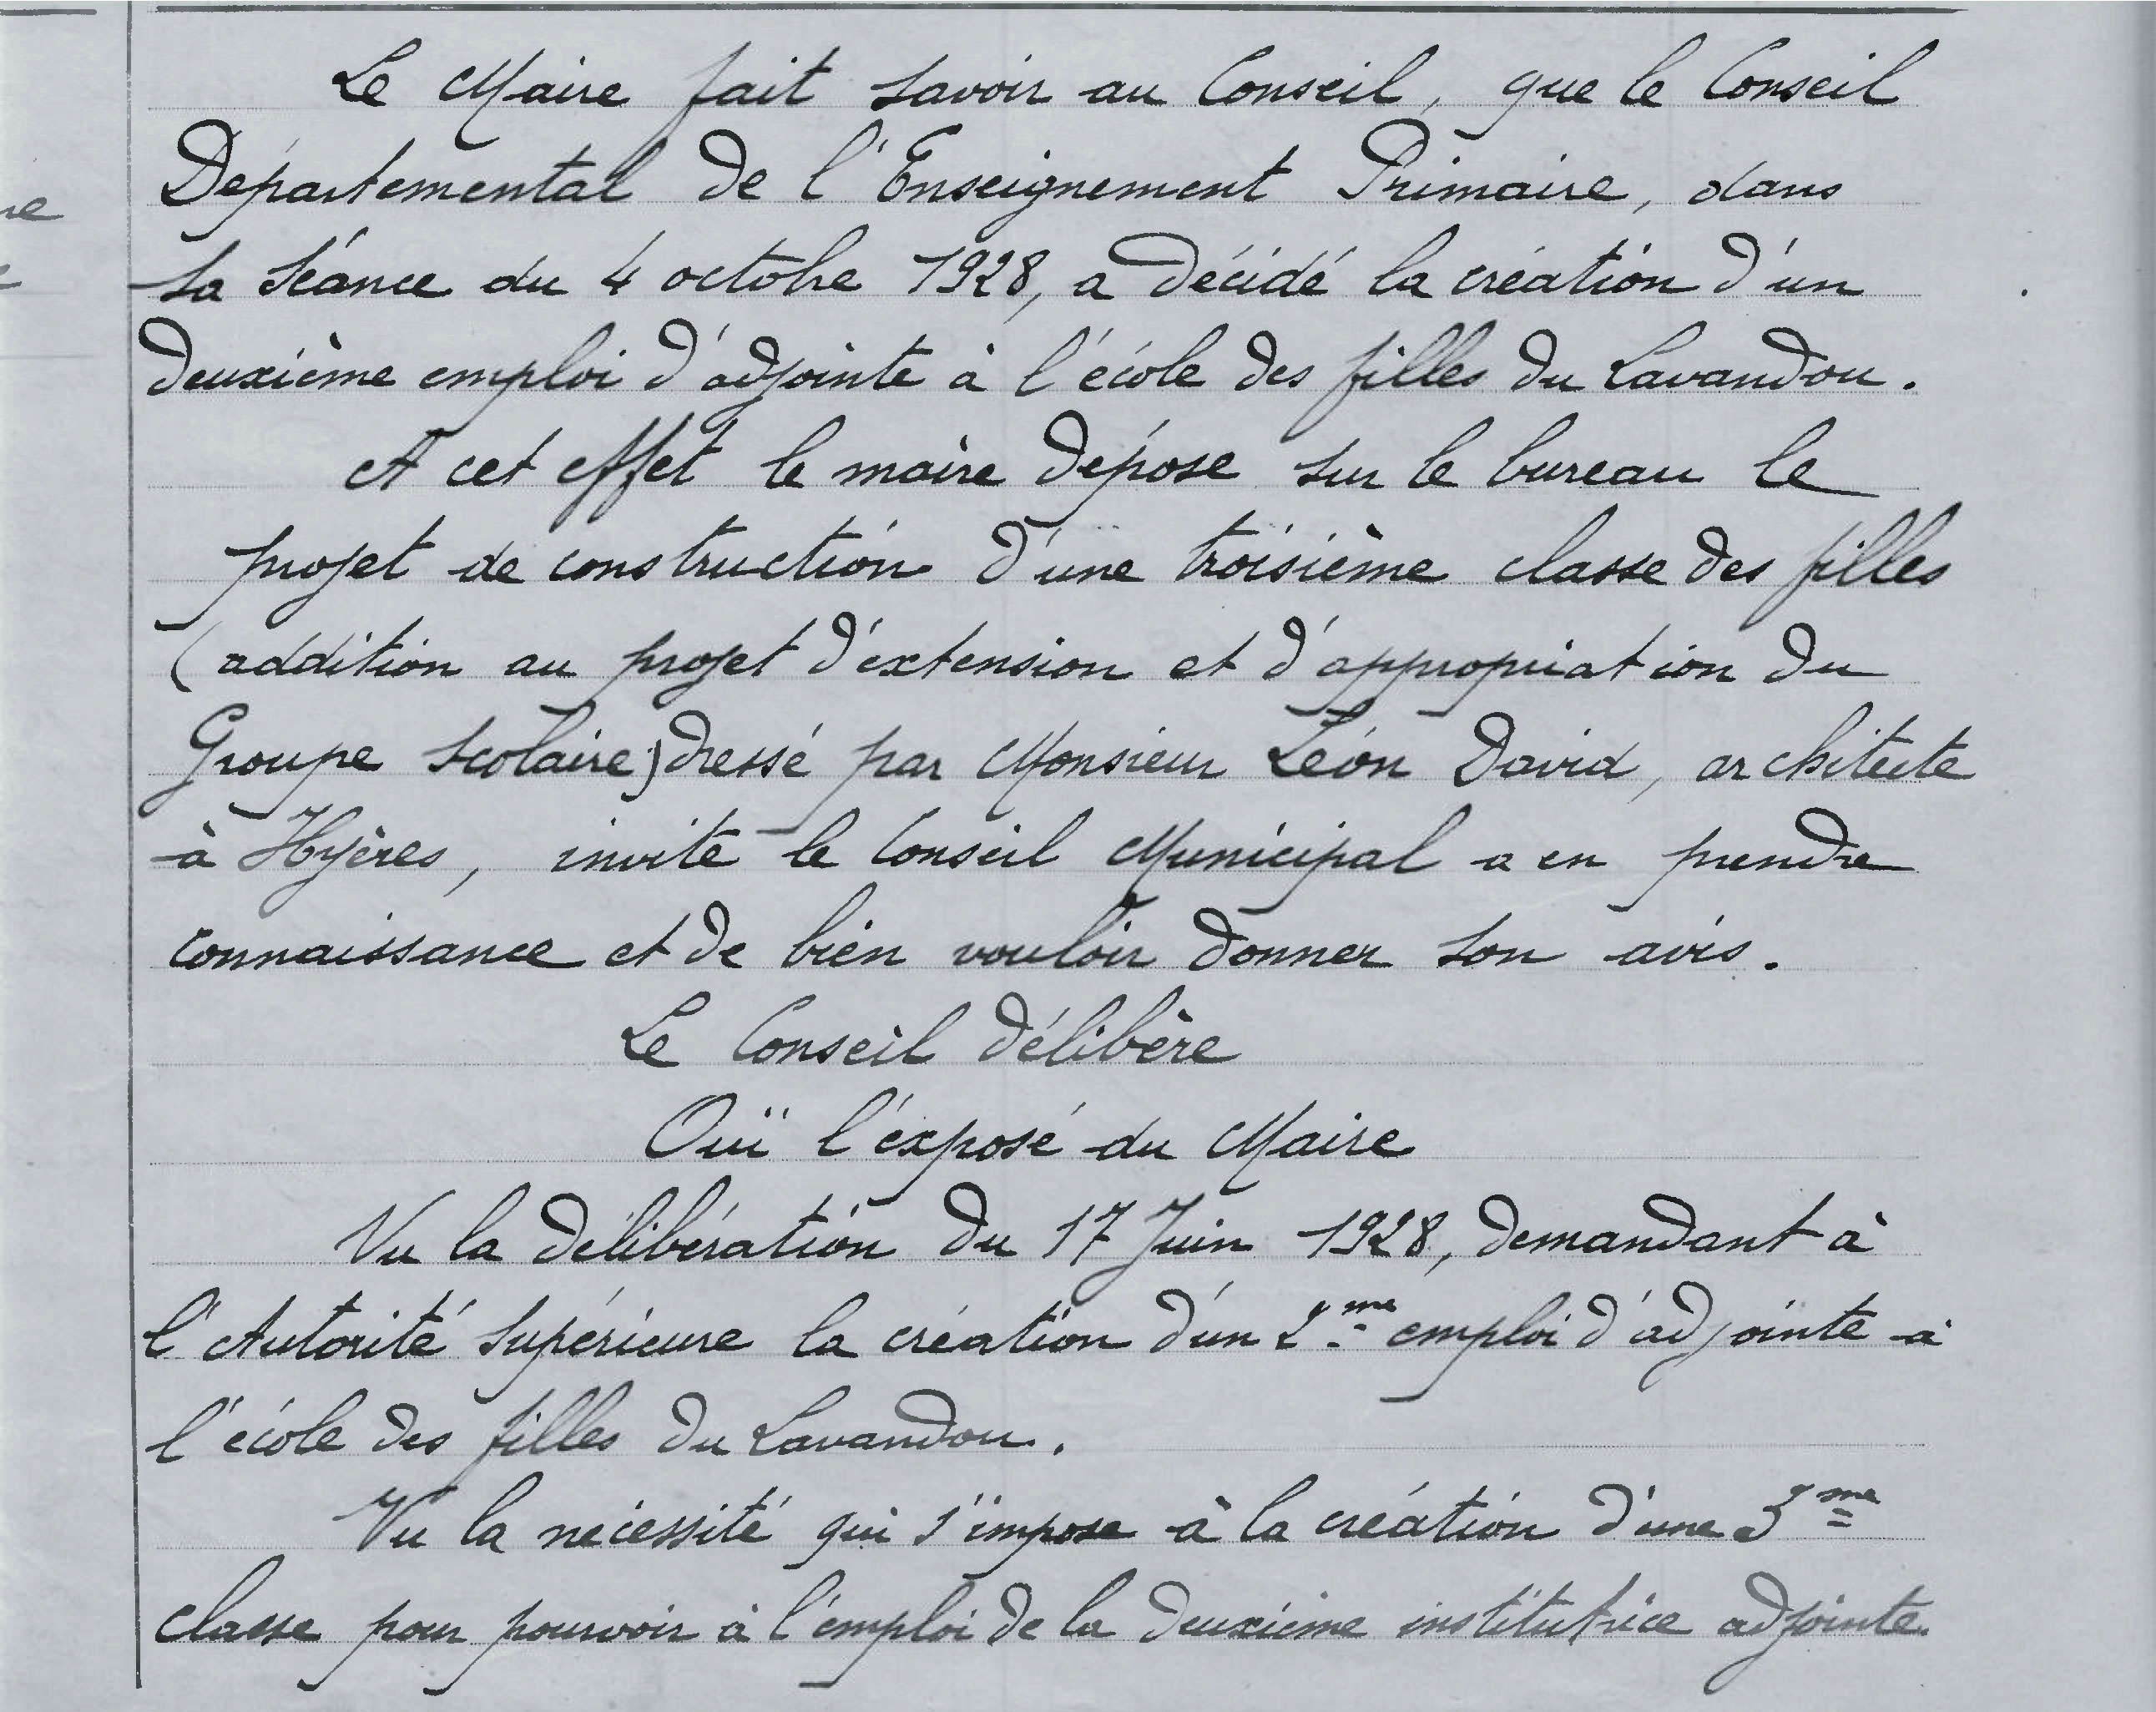 Le Maire fait savoir au Conseil, que le Conseil
Départemental de l'Enseignement Primaire, dans
sa séance du 4 octobre 1928, a décidé la création d'un
deuxième emploi d'adjointe à l'école des filles du Lavandou.
A cet effet le maire dépose sur le bureau le
projet de construction d'une troisième classe des filles
(addition au projet d'extension et d'appropriation du
Groupe scolaire) dressé par Monsieur Léon David, architecte
à Hyères, invite le Conseil Municipal a en prendre
connaissance et de bien vouloir donner son avis.
Le Conseil délibère
Ouï l'exposé du Maire
Vu la délibération du 17 Juin 1928, demandant à
l'Autorité supérieure la création d'un 2me emploi d'adjointe à
l'école des filles du Lavandou.
Vu la nécessité qui s'impose à la création d'une 3me
classe pour pourvoir à l'emploi de la deuxième institutrice adjointe.